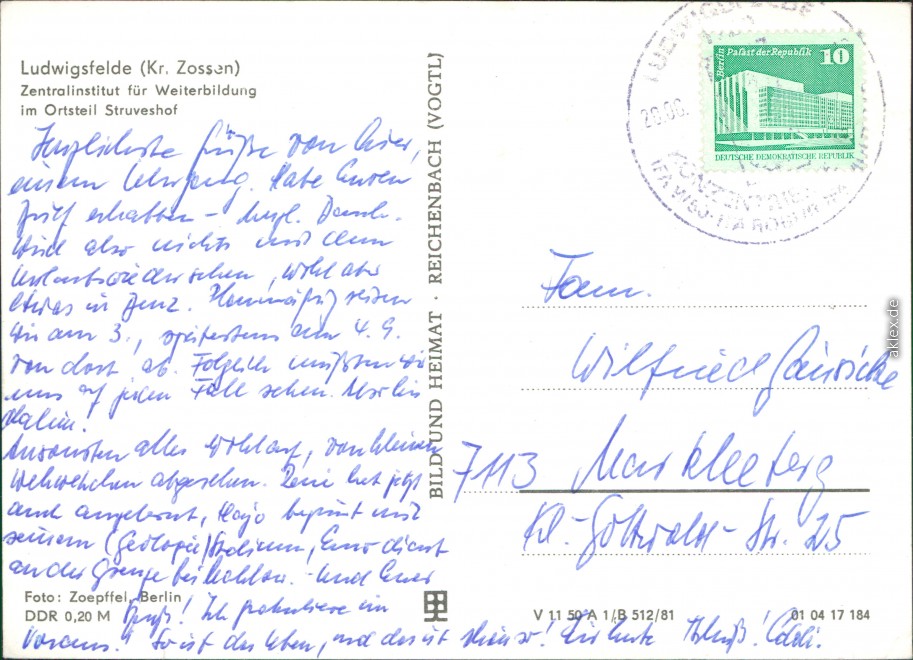 Ludwigsfelde (Kr. Zossen)
Zentralinstitut für Weiterbildung
im Ortsteil Struveshof
Herzlichste Grüße von hier,
einem Lehrgang. Habe Euren
Brief erhalten - herzl. Dank.
Wird also nichts mit dem
Urlaubswiedersehen, wohl aber
etwas in Planmäßig reisen
wir am 3., spätestens am 4. 9.
von dort ab. Folglich müßten wir
uns auf jeden Fall sehen.
Ansonsten alles wohlauf, von kleinen
Wehwehchen abgesehen. hat jetzt
auch angelernt, Hajo beginnt mit
seinem (Geologie) Studium, dient
an der Grenze bei Und Euer
Ich gratuliere im
Voraus! So ist das Leben, und das ist
Foto: Zoepffel, Berlin
DDR 0,20 M
BILD UND HEIMAT · REICHENBACH (VOGTL)
V 11 50 A 1/B 512/81
01 04 17 184
LUDWIGSFELDE
26.06.
Berlin Palast der Republik
10
DEUTSCHE DEMOKRATISCHE REPUBLIK
Fam.
Wilfried
7113 Markkleeberg
Kl.-Gottwald-Str. 25
aklex.de